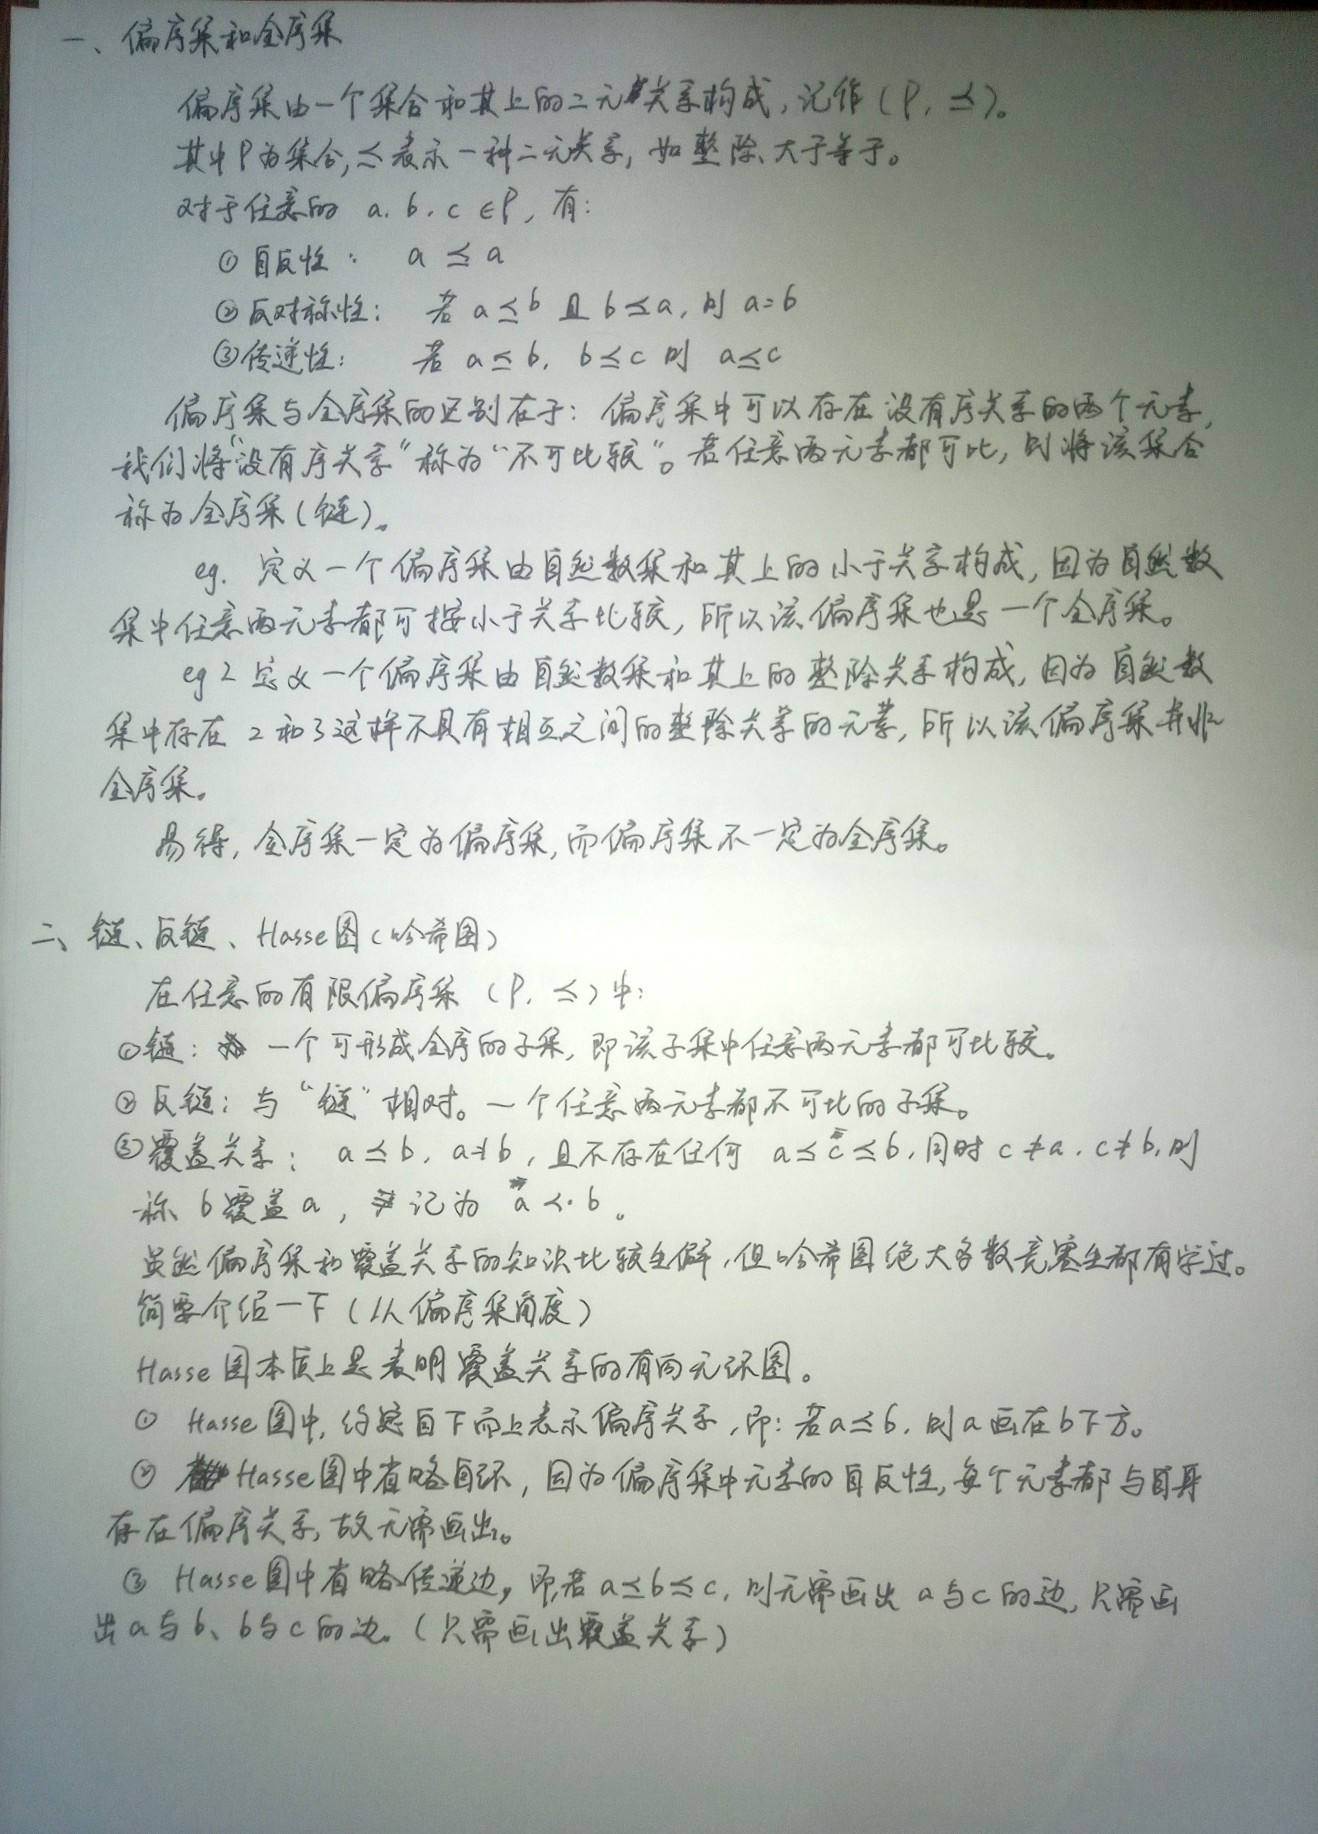 一、偏序集和全序集
偏序集由一个集合和其上的二元关系构成,记作(P, ≤)。
其中P为集合,≤表示一种二元关系,如整除、大于等于。
对于任意的 a, b, c ∈P,有:
① 自反性: a ≤ a
② 反对称性: 若 a≤b 且 b≤a, 则 a=b
③传递性: 若 a≤b, b≤c 则 a≤c
偏序集与全序集的区别在于:偏序集中可以存在没有序关系的两个元素,
我们将“没有序关系”称为“不可比较”。若任意两元素都可比,则将该集合
称为全序集(链)。
eg. 定义一个偏序集由自然数集和其上的小于关系构成,因为自然数
集中任意两元素都可按小于关系比较,所以该偏序集也是一个全序集。
eg 2 定义一个偏序集由自然数集和其上的整除关系构成,因为自然数
集中存在 2和3这样不具有相互之间的整除关系的元素,所以该偏序集并非
全序集。
易得,全序集一定为偏序集,而偏序集不一定为全序集。
二、链、反链、Hasse图(哈希图)
在任意的有限偏序集 (P, ≤)中:
①链: 一个可形成全序的子集,即该子集中任意两元素都可比较。
② 反链:与“链”相对。一个任意两元素都不可比的子集。
③覆盖关系: a≤b, a≠b,且不存在任何 a≤c≤b,同时 c≠a, c≠b,则
称 b覆盖a, 记为 a<·b。
虽然偏序集和覆盖关系的知识比较生僻,但哈希图绝大多数竞赛生都有学过。
简要介绍一下(从偏序集角度)
Hasse 图本质上是表明覆盖关系的有向无环图。
① Hasse 图中,约定自下而上表示偏序关系,即:若a≤b,则a画在b下方。
② Hasse图中省略自环,因为偏序集中元素的自反性,每个元素都与自身
存在偏序关系,故无需画出。
③ Hasse图中省略传递边,即,若 a≤b≤c, 则无需画出 a与c的边,只需画
出a与b、b与c的边。(只需画出覆盖关系)